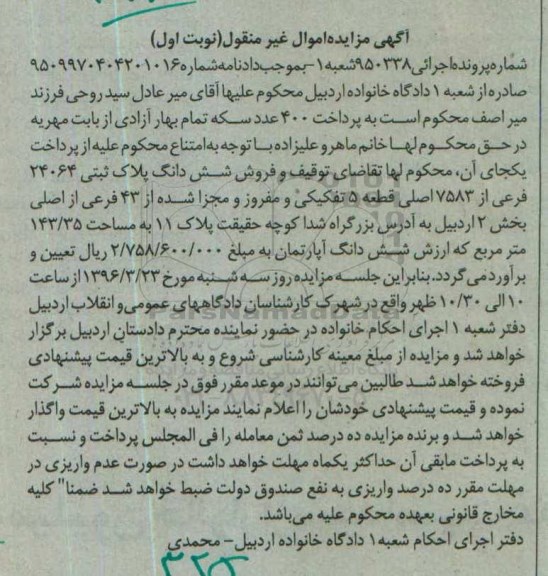 آگهی مزایده اموال غیر منقول(نوبت اول)
شماره پرونده اجرائی ۹۵۰۳۳۸ شعبه ۱-بموجب دادنامه شماره ۹۵۰۹۹۷۰۴۰۴۲۰۱۰۱۶
صادره از شعبه ۱ دادگاه خانواده اردبیل محکوم علیها آقای میر عادل سید روحی فرزند
میر اصف محکوم است به پرداخت ۴۰۰ عدد سکه تمام بهار آزادی از بابت مهریه
در حق محکوم لها خانم ماهرو علیزاده با توجه به امتناع محکوم علیه از پرداخت
یکجای آن، محکوم لها تقاضای توقیف و فروش شش دانگ پلاک ثبتی ۲۴۰۶۴
فرعی از ۷۵۸۳ اصلی قطعه ۵ تفکیکی و مفروز و مجزا شده از ۴۳ فرعی از اصلی
بخش ۲ اردبیل به آدرس بزرگراه شدا کوچه حقیقت پلاک ۱۱ به مساحت ۱۴۳/۳۵
متر مربع که ارزش شش دانگ آپارتمان به مبلغ ۲/۷۵۸/۶۰۰/۰۰۰ ریال تعیین و
برآورد می گردد.بنابراین جلسه مزایده روز سه شنبه مورخ ۱۳۹۶/۳/۲۳ از ساعت
۱۰ الی ۱۰/۳۰ ظهر واقع در شهرک کارشناسان دادگاههای عمومی و انقلاب اردبیل
دفتر شعبه ۱ اجرای احکام خانواده در حضور نماینده محترم دادستان اردبیل برگزار
خواهد شد و مزایده از مبلغ معینه کارشناسی شروع و به بالاترین قیمت پیشنهادی
فروخته خواهد شد طالبین می توانند در موعد مقرر فوق در جلسه مزایده شرکت
نموده و قیمت پیشنهادی خودشان را اعلام نمایند مزایده به بالاترین قیمت واگذار
خواهد شد و برنده مزایده ده درصد ثمن معامله را فی المجلس پرداخت و نسبت
به پرداخت مابقی آن حداکثر یکماه مهلت خواهد داشت در صورت عدم واریزی در
مهلت مقرر ده درصد واریزی به نفع صندوق دولت ضبط خواهد شد ضمنا" کلیه
مخارج قانونی بعهده محکوم علیه می باشد.
دفتر اجرای احکام شعبه ۱ دادگاه خانواده اردبیل- محمدی
ParsNamadData